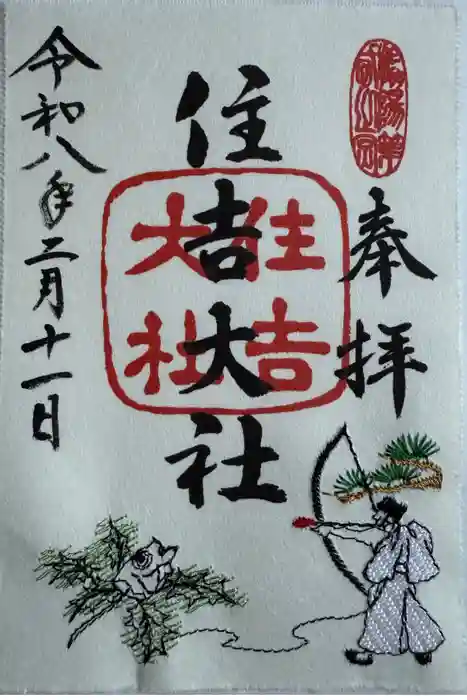 奉拝
住吉大社
住吉大社
令和八年二月十一日